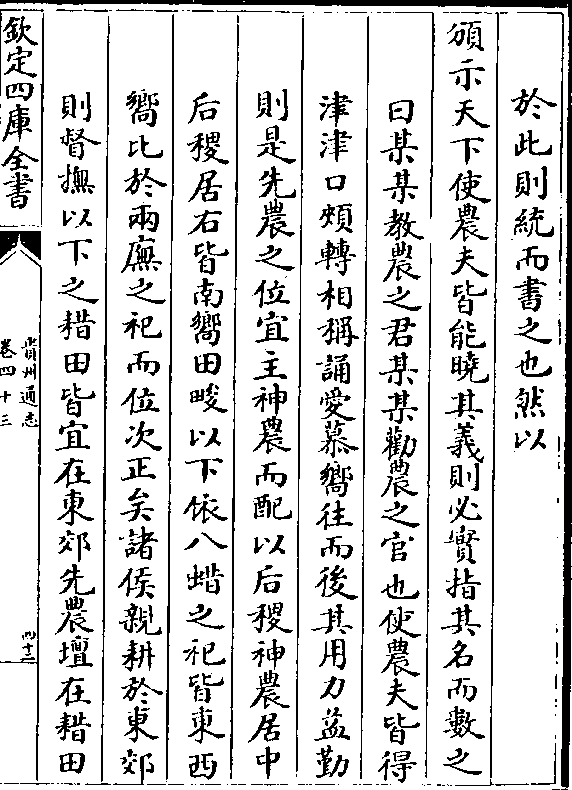 於此則統而書之也然以
頒示天下使農夫皆能曉其義則必實指其名而數之
曰某某教農之君某某勸農之官也使農夫皆得
津津口頰轉相稱誦愛慕嚮往而後其用力益勤
則是先農之位宜主神農而配以后稷神農居中
后稷居右皆南嚮田畯以下依八蜡之祀皆東西
嚮比於兩廡之祀而位次正矣諸侯親耕於東郊
則督撫以下之耤田皆宜在東郊先農壇在耤田
欽定四庫全書
貴州通志
卷四十三
四十二